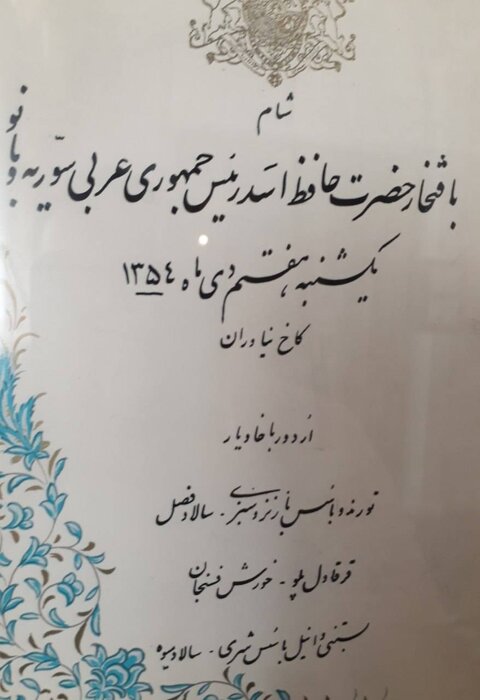 شام
بافتخار حضرت حافظ اسد رئیس جمهوری عربی سوّریه و بانو
یکشنبه، هفتم دی ماه ۱۳۵٤
کاخ نیاوران
اردور با خاویار
تورنه‌دو با سس بارنز و سبزی - سالاد فصل
قرقاول پلو - خورش فسنجان
بستنی وانیل با سس شری - سالاد میوه